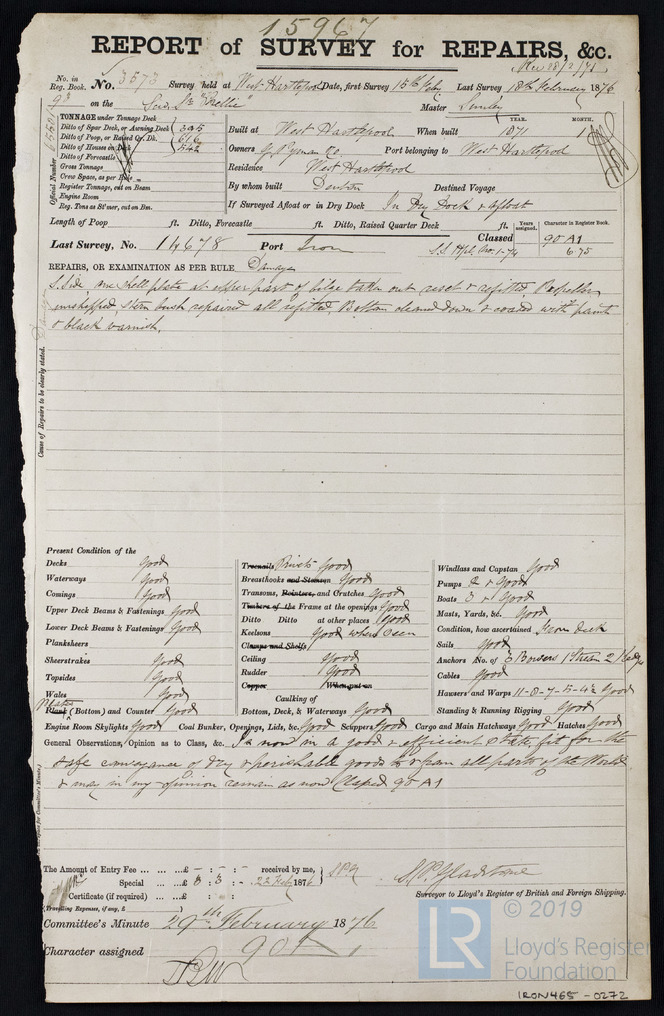 15967
REPORT of SURVEY for REPAIRS, &c.
No. in Reg. Book. No. 3573 Survey held at West Hartlepool Date, first Survey 15th Feby Last Survey 18th February 1876
93 on the Scrw Sr "Nellie" Master
TONNAGE under Tonnage Deck
Ditto of Spar Deck, or Awning Deck 395
Ditto of Poop, or Raised Qr. Dk. 616
Ditto of Houses on Deck 542
Ditto of Forecastle
Gross Tonnage
Crew Space, as per Rule
Register Tonnage, cut on Beam
Engine Room
Reg. Tons as St'mer, cut on Bm.
Official Number
Built at West Hartlepool When built YEAR. 1871 MONTH. 1
Owners G. Pyman & Co. Port belonging to West Hartlepool
Residence West Hartlepool
By whom built Denton Destined Voyage
If Surveyed Afloat or in Dry Dock In Dry Dock & afloat
Length of Poop ft. Ditto, Forecastle ft. Ditto, Raised Quarter Deck ft. Years assigned. Character in Register Book.
Last Survey, No. 14678 Port Iron Classed 90 A1
6.75
REPAIRS, OR EXAMINATION AS PER RULE Damages
S. Side one shell plate at upper part of bilge taken out reset & refitted. Propeller
unshipped, Stern bush repaired all refitted. Bottom cleaned down & coated with paint
& black varnish.
Cause of Repairs to be clearly stated.
Present Condition of the
Decks Good
Waterways Good
Comings Good
Upper Deck Beams & Fastenings Good
Lower Deck Beams & Fastenings Good
Planksheers
Sheerstrakes Good
Topsides Good
Wales Good
Plank (Bottom) and Counter Good
Treenails Rivets Good
Breasthooks and Stemson Good
Transoms, Pointers, and Crutches Good
Timbers of the Frame at the openings Good
Ditto Ditto at other places Good
Keelsons Good where seen
Clamps and Shelfs
Ceiling Good
Rudder Good
Copper When put on
Caulking of
Bottom, Deck, & Waterways Good
Windlass and Capstan Good
Pumps 2 & Good
Boats 3 & Good
Masts, Yards, &c. Good
Condition, how ascertained From deck
Sails Good
Anchors No. of 3 Bowers 1 Stream 2 Kedges
Cables Good
Hawsers and Warps 11-8-7-5-4½ Good
Standing & Running Rigging Good
Engine Room Skylights Good Coal Bunker, Openings, Lids, &c. Good Scuppers Good Cargo and Main Hatchways Good Hatches Good
General Observations, Opinion as to Class, &c. Is now in a good & efficient state, fit for the
safe conveyance of dry & perishable goods to & from all parts of the World
& may in my opinion remain as now Classed 90 A1
The Amount of Entry Fee ... ... ...£ - : - : - received by me,
Special ... ...£ 3 : 3 : - 22 Feby 1876
Certificate (if required) ... ...£ : :
(Travelling Expenses, if any, £
Gladstone
Surveyor to Lloyd's Register of British and Foreign Shipping.
Committee's Minute 29th February 1876
Character assigned 90 A1
© 2019
LR
Lloyd's Register
Foundation
IRON465-0272